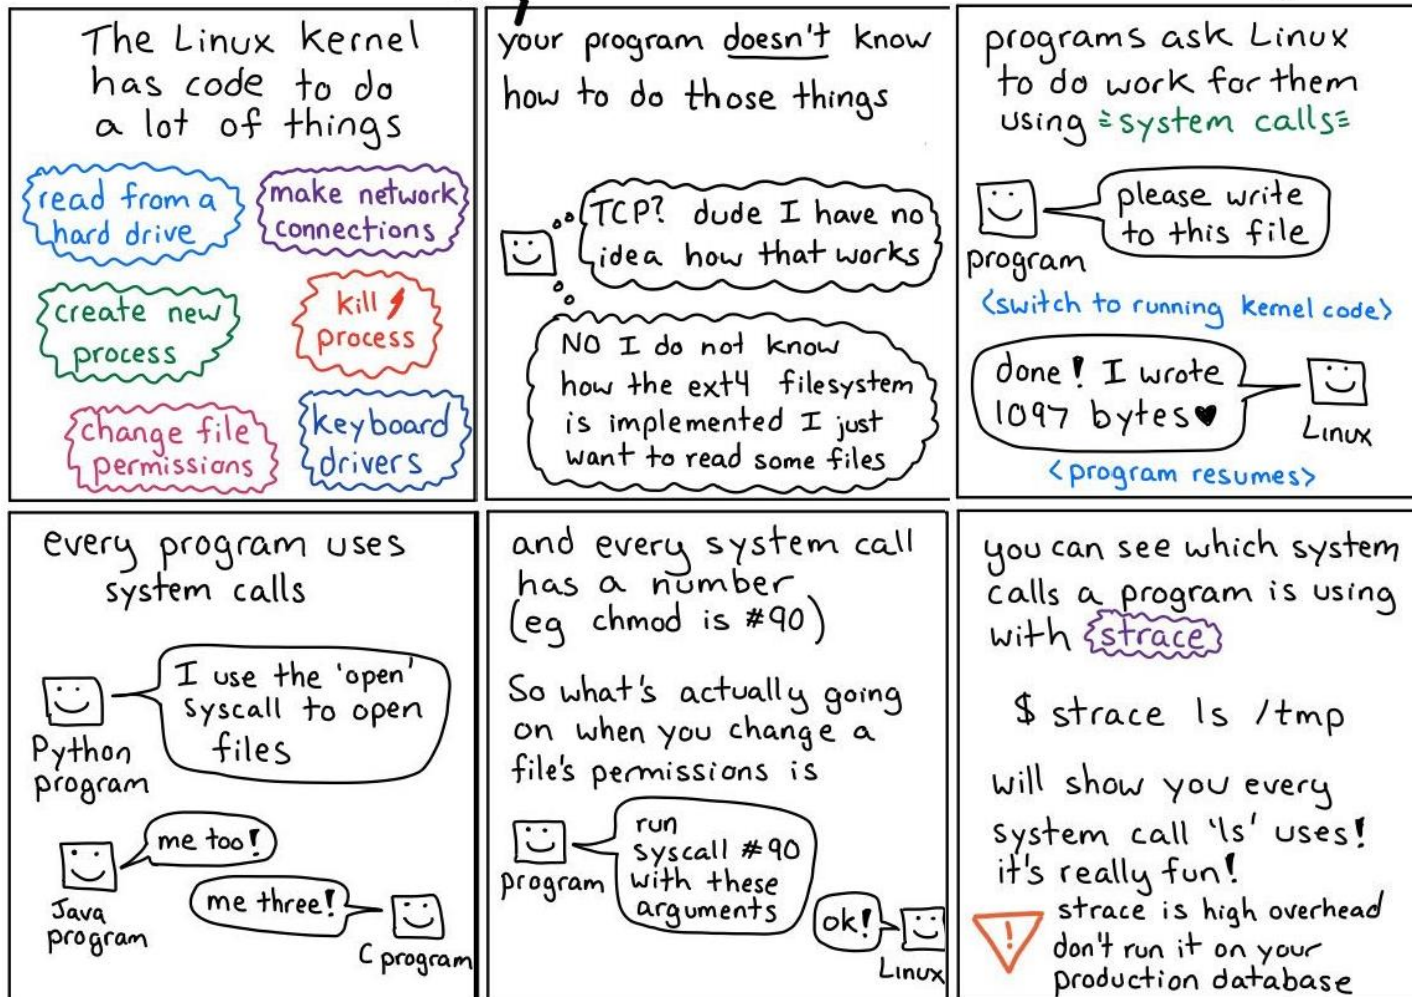 The Linux kernel
has code to do
a lot of things
read from a
hard drive
make network
connections
create new
process
kill
process
change file
permissions
keyboard
drivers
your program doesn't know
how to do those things
TCP? dude I have no
idea how that works
NO I do not know
how the ext4 filesystem
is implemented I just
want to read some files
programs ask Linux
to do work for them
using system calls
please write
to this file
program
<switch to running kernel code>
done! I wrote
1097 bytes♥
Linux
<program resumes>
every program uses
system calls
I use the 'open'
syscall to open
files
Python
program
me too!
Java
program
me three!
C program
and every system call
has a number
(eg chmod is #90)
So what's actually going
on when you change a
file's permissions is
run
syscall #90
with these
arguments
program
ok!
Linux
you can see which system
calls a program is using
with strace
$ strace ls /tmp
will show you every
system call 'ls' uses!
it's really fun!
!
strace is high overhead
don't run it on your
production database